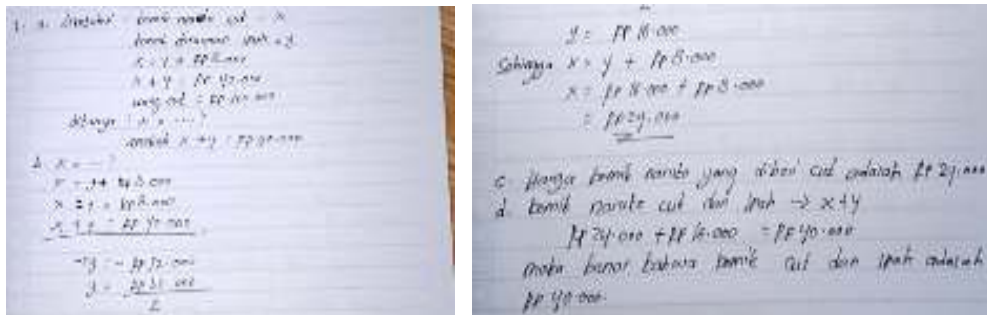 1. a. Diketahui : komik naruto cut = x
komik doraemon ipah = y
x = y + Rp 8.000
x + y = Rp 40.000
uang cut = Rp
ditanya : x = ....?
x + y = Rp 40.000
b. x = ....?
x = y + Rp 8.000
x - y = Rp 8.000
x + y = Rp 40.000
-2y = - Rp 32.000
y = Rp 32.000
2
y = Rp 16.000
Sehingga x = y + Rp 8.000
x = Rp 16.000 + Rp 8.000
= Rp 24.000
c. Harga komik naruto yang dibeli cut adalah Rp 24.000
d. komik naruto cut dan ipah → x+y
Rp 24.000 + Rp 16.000 = Rp 40.000
maka benar bahwa komik cut dan ipah adalah
Rp 40.000